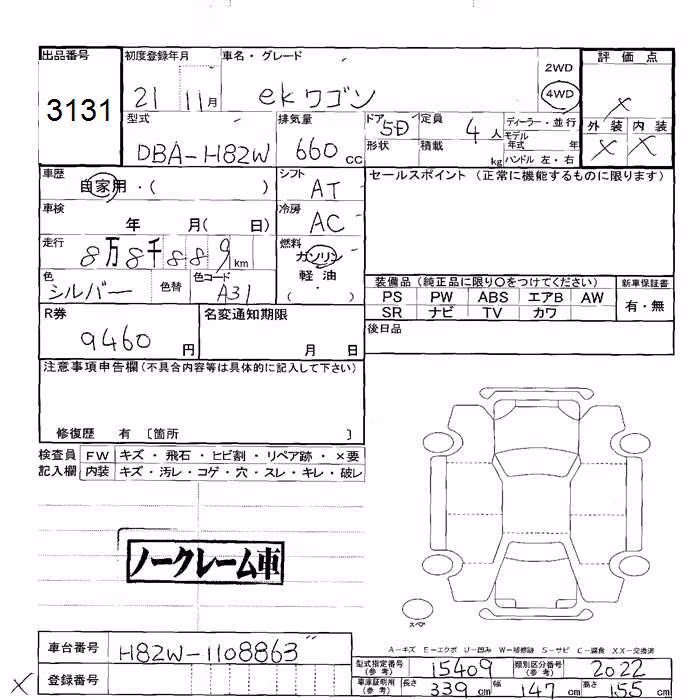 出品番号 初度登録年月 車名・グレード 2WD 評価点
3131 21 11月 ekワゴン 4WD ×
型式 排気量 ドア 5D 定員 4人 ディーラー・並行 外装 内装
DBA-H82W 660cc 形状 積載 kg モデル年式 年 × ×
ハンドル 左・右
車歴 自家用・( ) シフト AT セールスポイント(正常に機能するものに限ります)
車検 年 月( 日) 冷房 AC
走行 8万8千889km 燃料 ガソリン
軽油
( )
色 シルバー 色替 色コード A31
装備品(純正品に限り○をつけてください) 新車保証書
PS PW ABS エアB AW 有・無
SR ナビ TV カワ
R券 9460円 名変通知期限 月 日 後日品
注意事項申告欄(不具合内容等は具体的に記入して下さい)
修復歴 有 〔箇所 〕
検査員 FW キズ・飛石・ヒビ割・リペア跡・×要
記入欄 内装 キズ・汚レ・コゲ・穴・スレ・キレ・破レ
ノークレーム車
スペア
A-キズ E-エクボ U-凹み W-補修跡 S-サビ C-腐食 XX-交換済
車台番号 H82W-1108863
型式指定番号(参考) 15409 類別区分番号(参考) 2022
× 登録番号
車庫証明用(参考) 長さ 339cm 幅 147cm 高さ 155cm